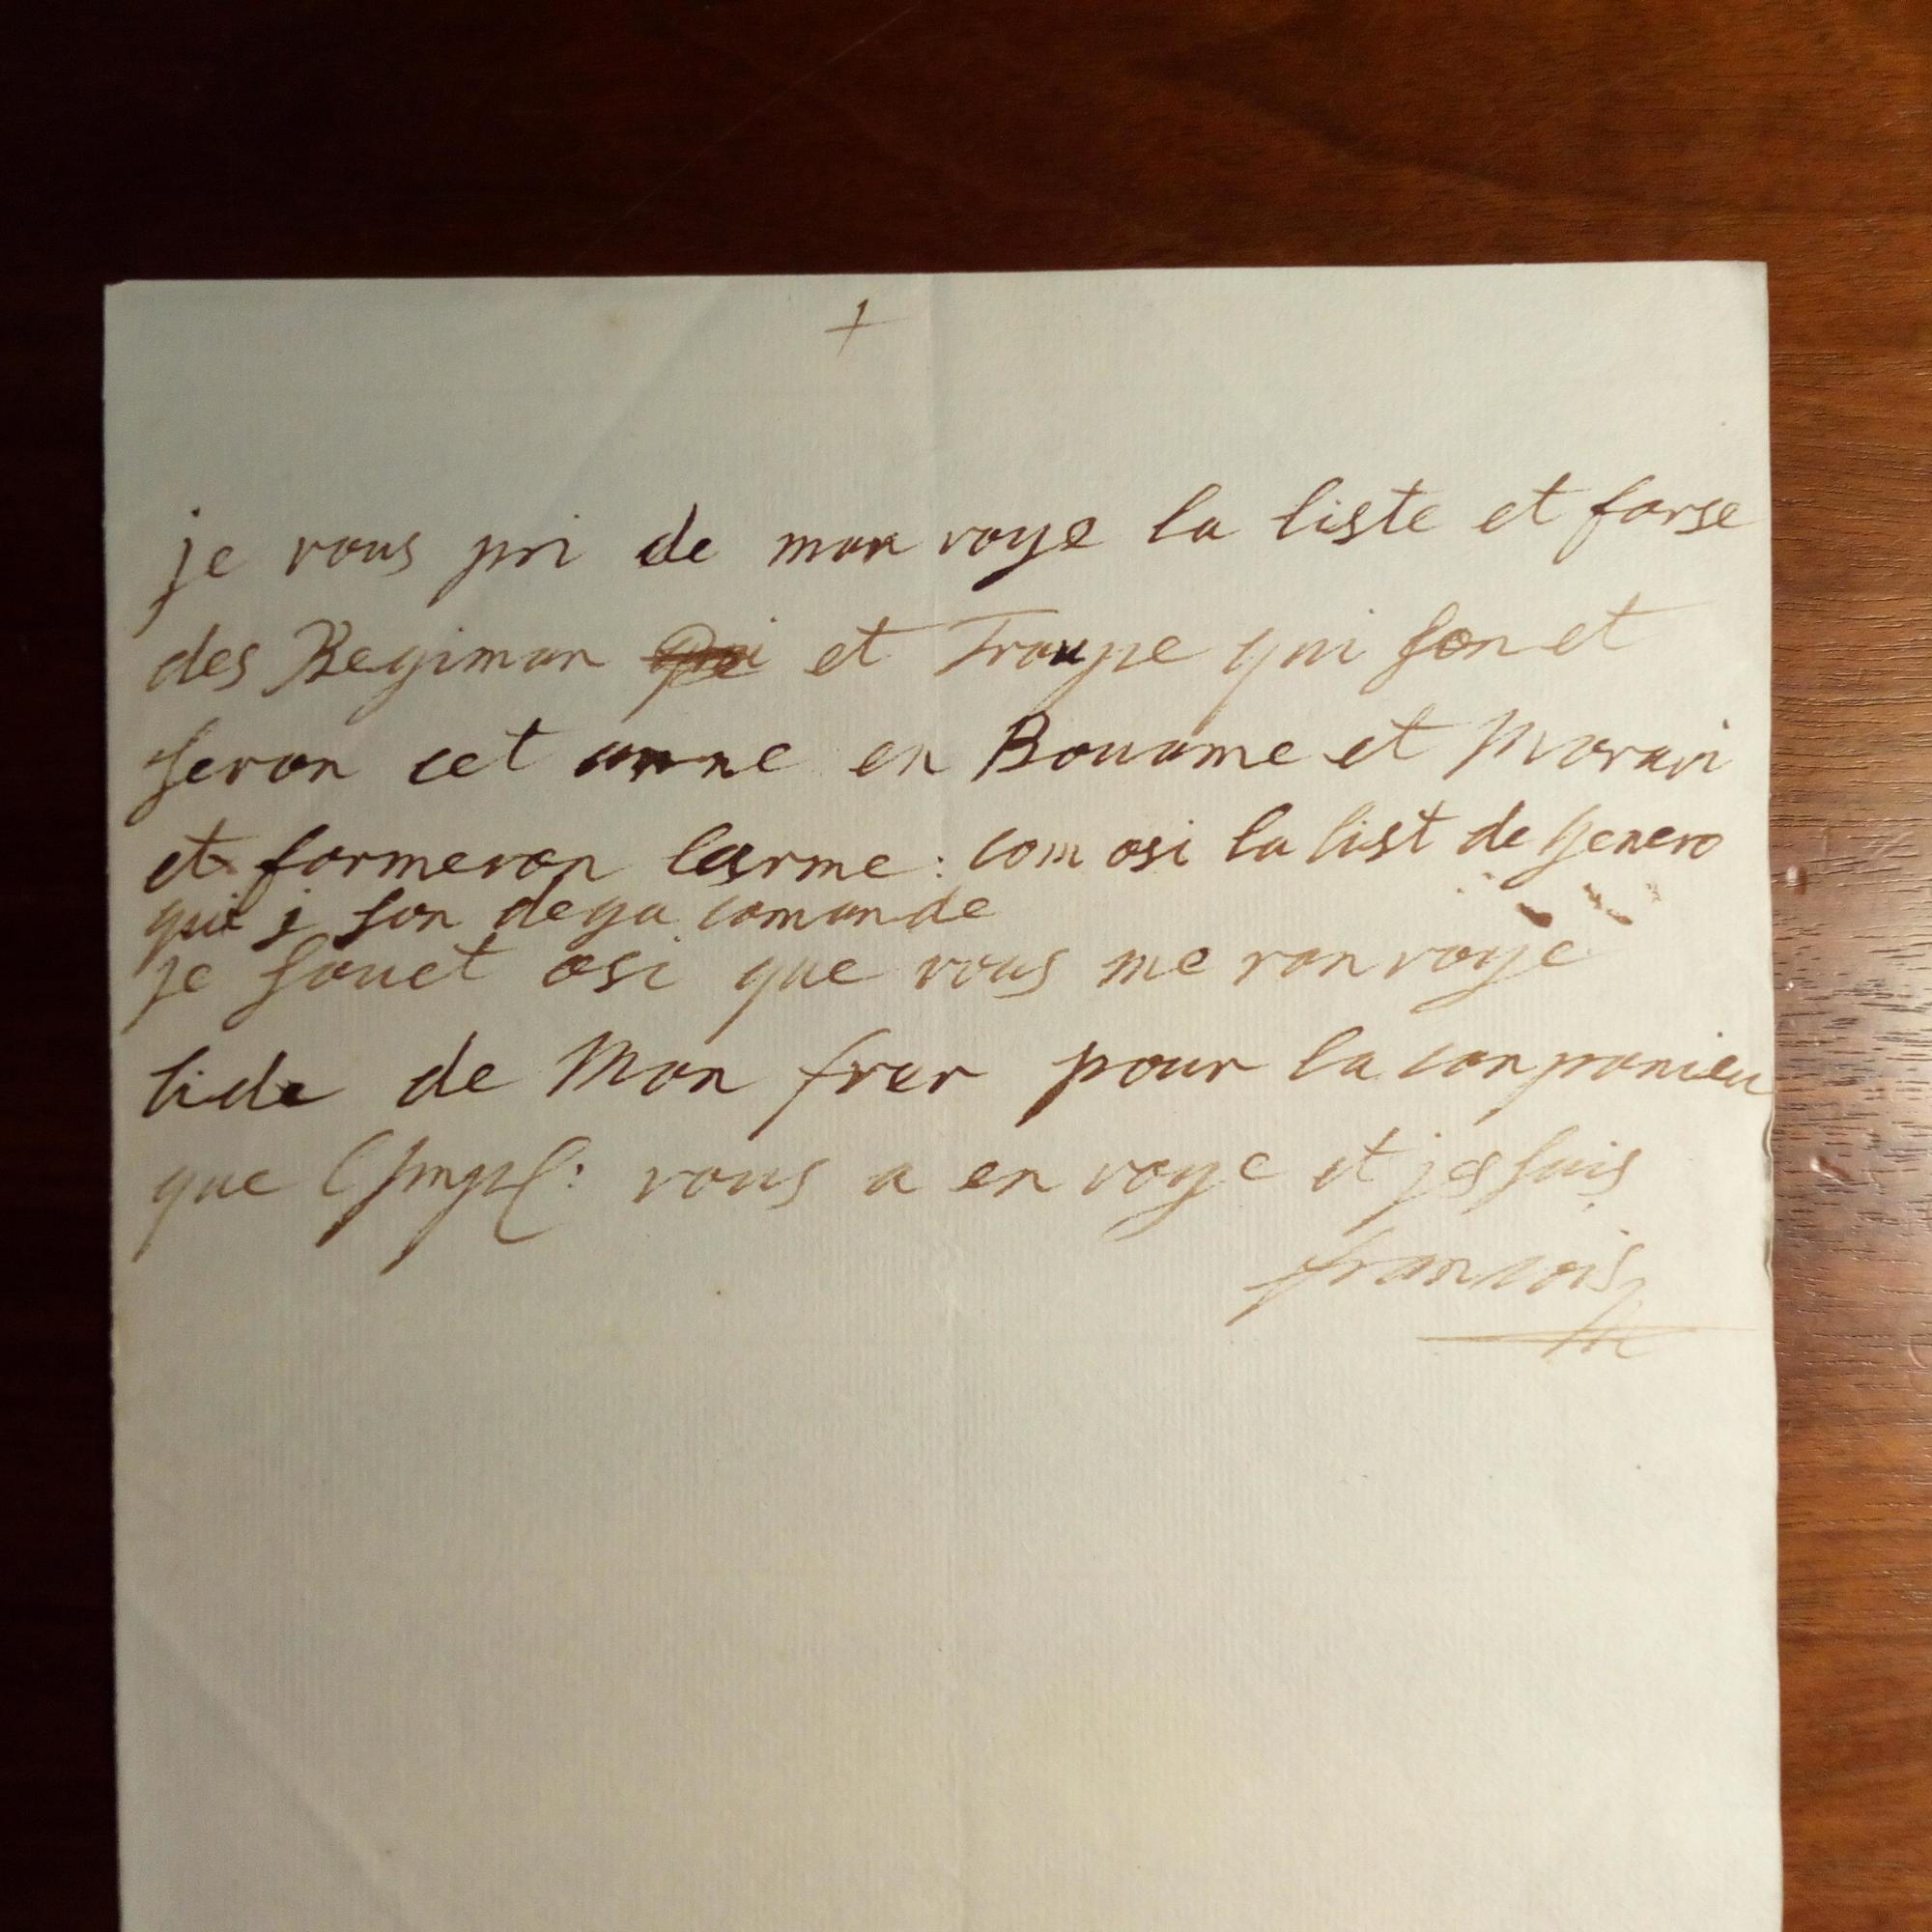 +
je vous pri de man voye la liste et forse
des Regiman et Troupe qui son et
seron cet anne en Bouame et Moravi
et formeron larme: com osi la list de genero
qui i son dega comande
je souet osi que vous me ranvoye
lide de Mon frer pour la conpanieu
que l Imp: vous a en voye et je suis
francois